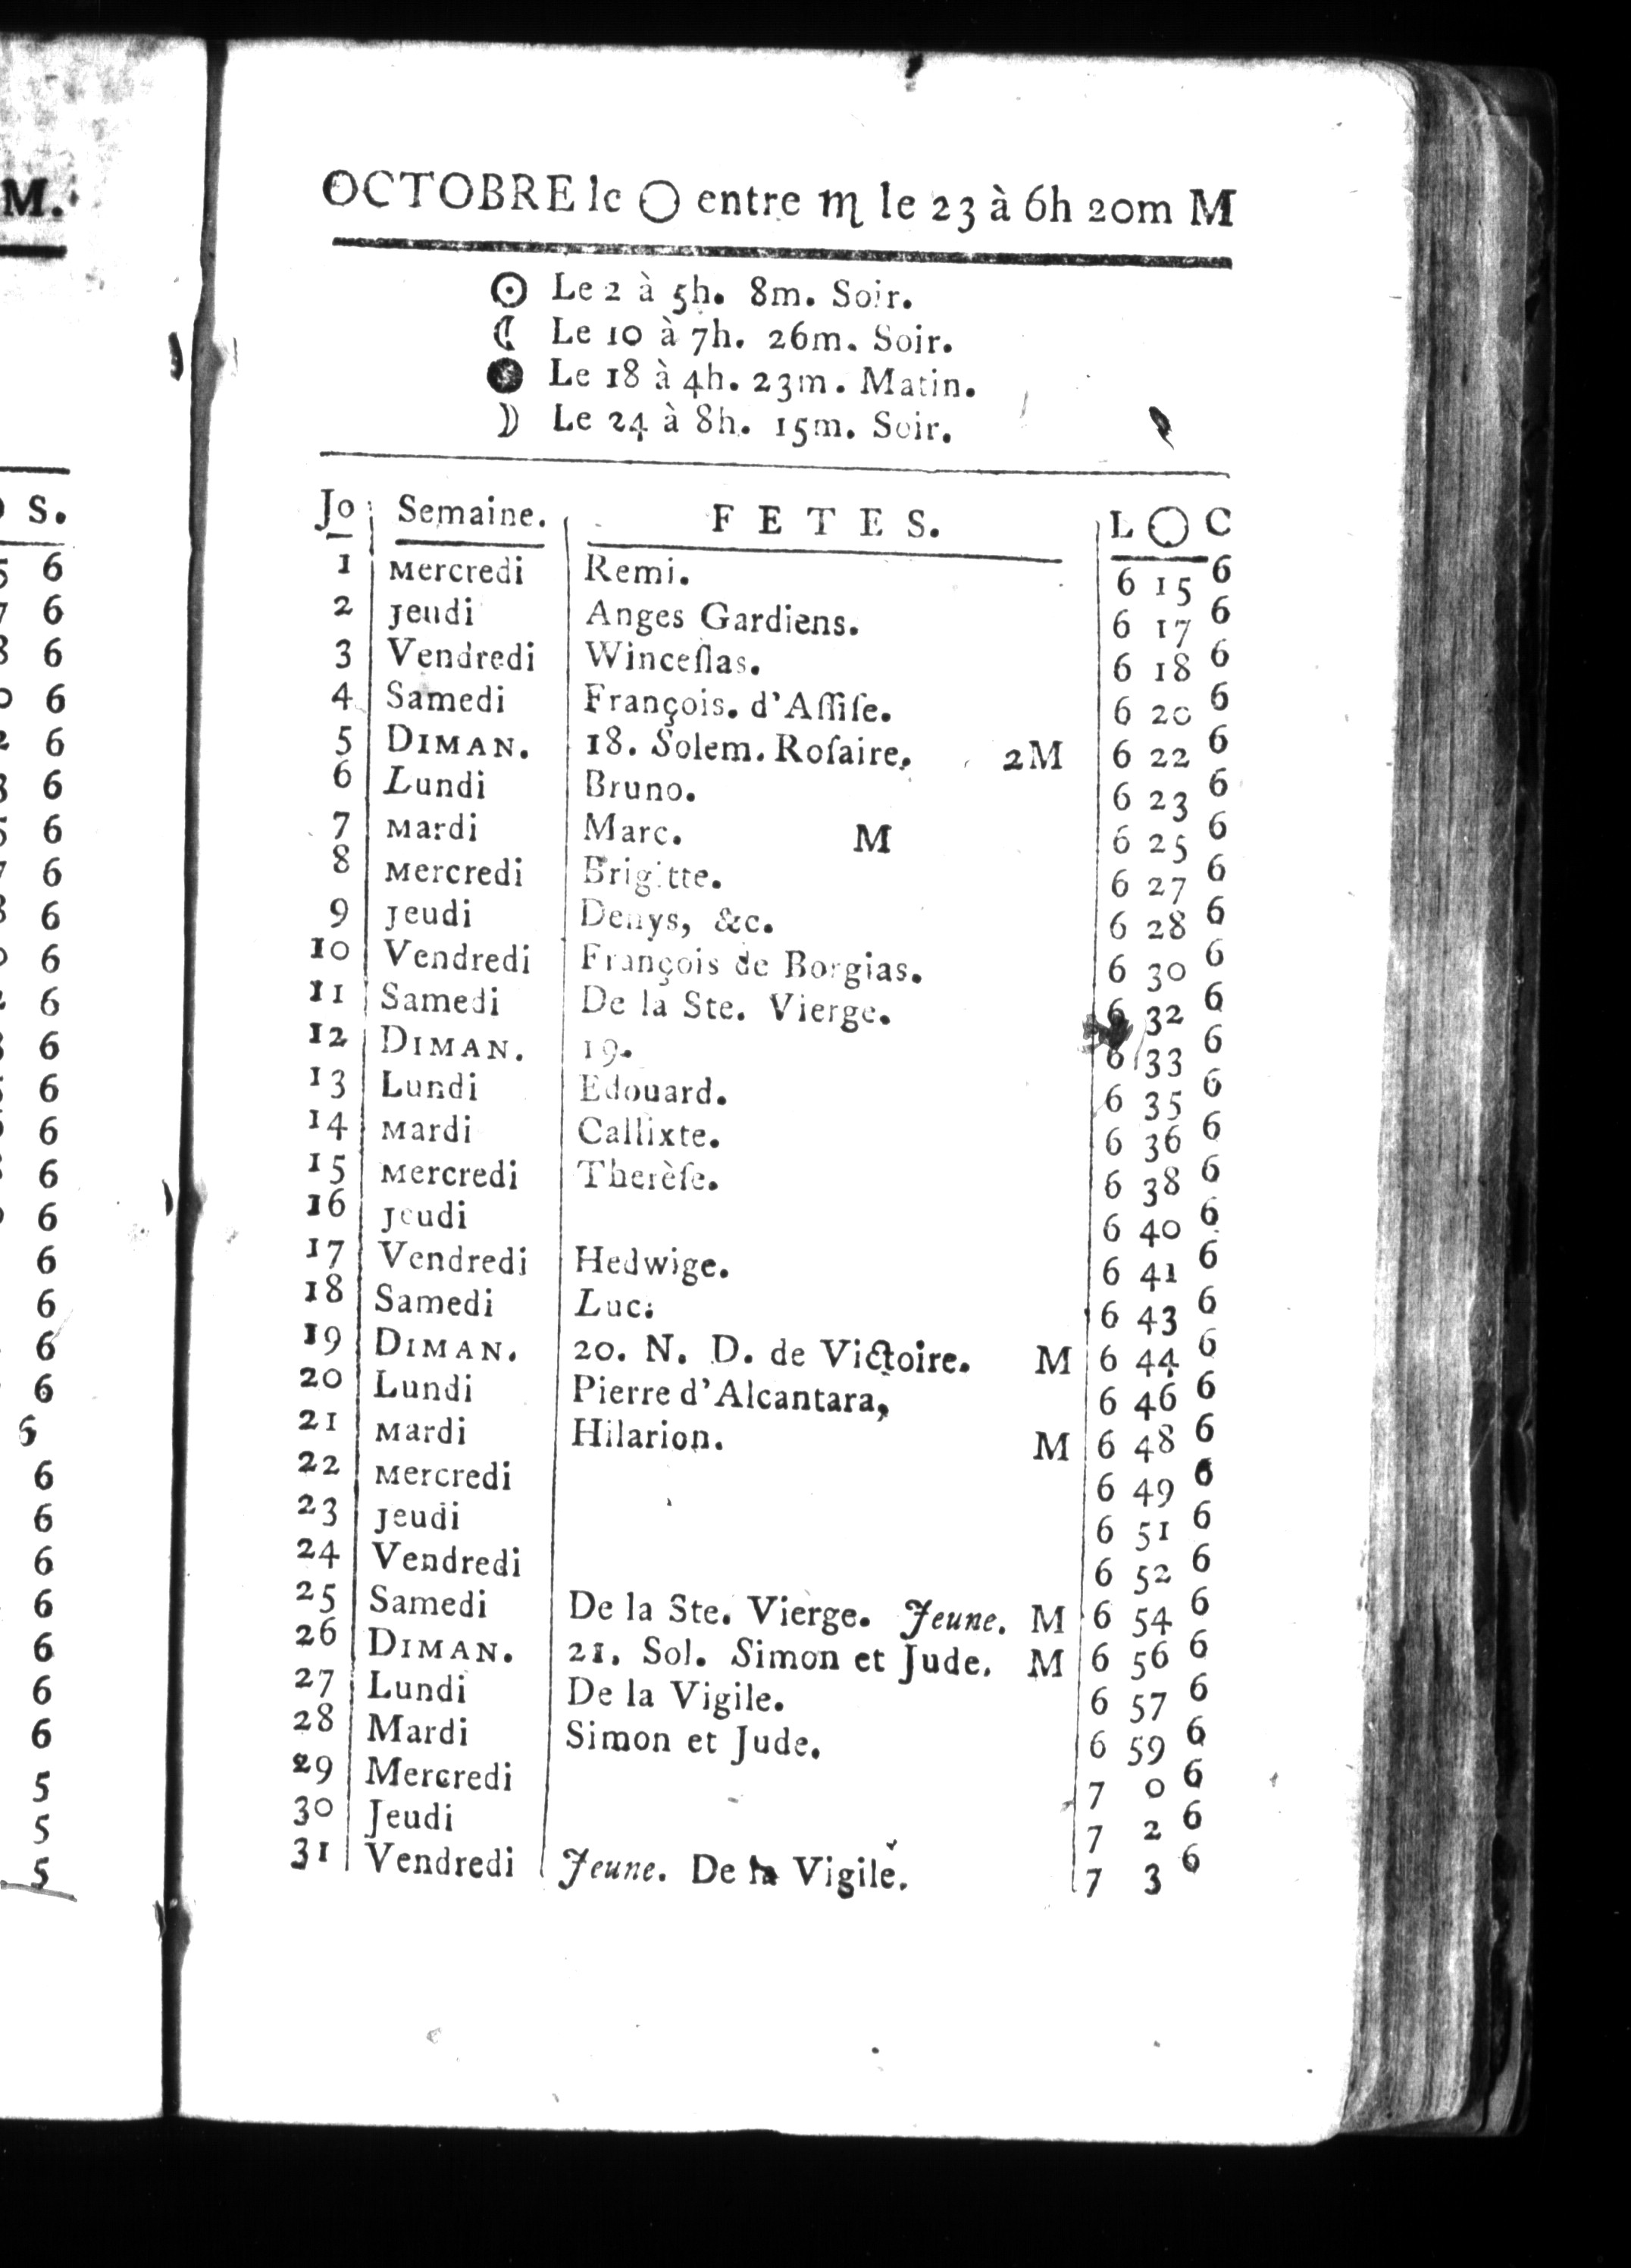 OCTOBRE le ◯ entre ♏ le 23 à 6h 20m M
☉ Le 2 à 5h. 8m. Soir.
☾ Le 10 à 7h. 26m. Soir.
● Le 18 à 4h. 23m. Matin.
☽ Le 24 à 8h. 15m. Soir.
Jo Semaine. FETES. L ◯ C
1 Mercredi Remi. 6 15 6
2 Jeudi Anges Gardiens. 6 17 6
3 Vendredi Winceſlas. 6 18 6
4 Samedi François. d'Aſſiſe. 6 20 6
5 DIMAN. 18. Solem. Roſaire, 2M 6 22 6
6 Lundi Bruno. 6 23 6
7 Mardi Marc. M 6 25 6
8 Mercredi Brigitte. 6 27 6
9 Jeudi Denys, &c. 6 28 6
10 Vendredi François de Borgias. 6 30 6
11 Samedi De la Ste. Vierge. 6 32 6
12 DIMAN. 19. 6 33 6
13 Lundi Edouard. 6 35 6
14 Mardi Callixte. 6 36 6
15 Mercredi Therèſe. 6 38 6
16 Jeudi 6 40 6
17 Vendredi Hedwige. 6 41 6
18 Samedi Luc. 6 43 6
19 DIMAN. 20. N. D. de Victoire. M 6 44 6
20 Lundi Pierre d'Alcantara, 6 46 6
21 Mardi Hilarion. M 6 48 6
22 Mercredi 6 49 6
23 Jeudi 6 51 6
24 Vendredi 6 52 6
25 Samedi De la Ste. Vierge. Jeune. M 6 54 6
26 DIMAN. 21. Sol. Simon et Jude. M 6 56 6
27 Lundi De la Vigile. 6 57 6
28 Mardi Simon et Jude. 6 59 6
29 Mercredi 7 0 6
30 Jeudi 7 2 6
31 Vendredi Jeune. De la Vigile. 7 3 6